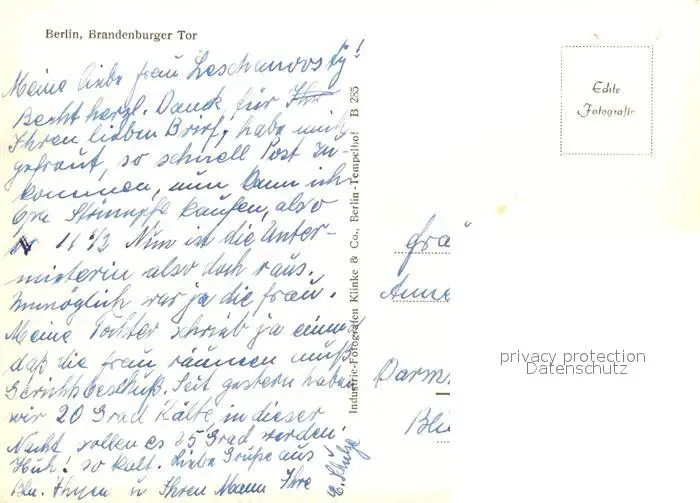 Berlin, Brandenburger Tor
Meine liebe frau Leschanovsky!
Recht herzl. Danck für Ihr
Ihren lieben Brief, habe mich
gefraut, so schnell Post zu-
kommen, nun kann ich
Opa Strümpfe kaufen, also
N 11 1/2 Nun ist die Unter-
mieterin also doch raus.
Unmöglich war ja die frau.
Meine Tochter schrieb ja einmal
daß die frau räumen muß
Gerichtsbeschluß. Seit gestern haben
wir 20 Grad Kälte, in dieser
Nacht sollen es 25 Grad werden.
Huh! so kalt. Liebe Grüße aus
Bln. Ihnen u Ihren Mann Ihre
E. Schulze
Industrie-Fotografen Klinke & Co., Berlin-Tempelhof B 285
Echte
Fotografie
frau
Anne
Darm
privacy protection
Datenschutz